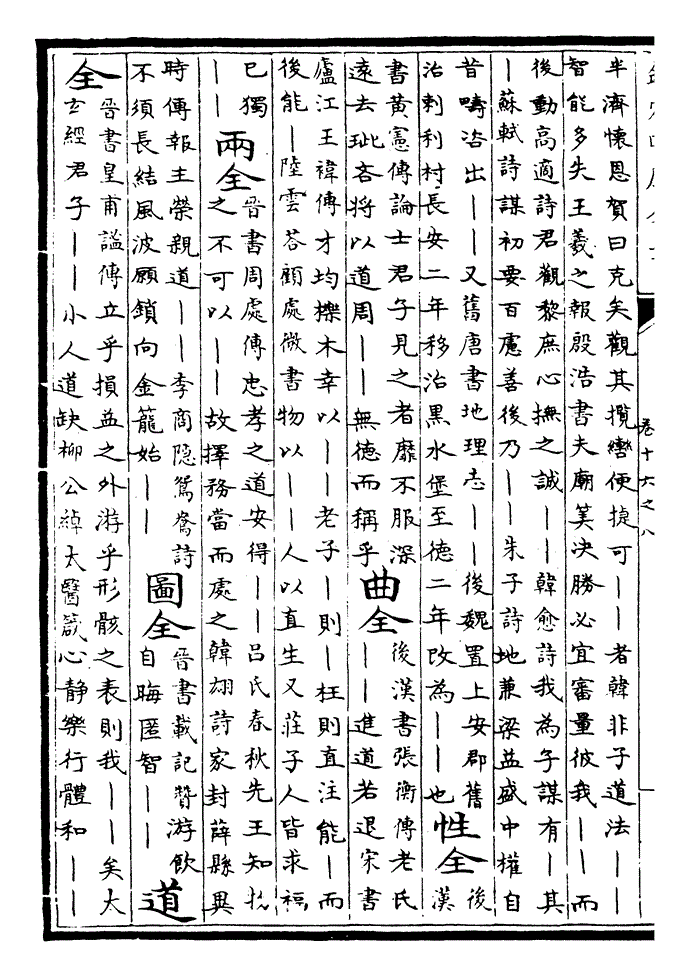 半濟懷恩賀曰克矣觀其攬轡便捷可――者韓非子道法――
智能多失王羲之報殷浩書夫廟筭决勝必宜審量彼我――而
後動高適詩君觀黎庶心撫之誠――韓愈詩我為子謀有――其
―蘇軾詩謀初要百慮善後乃――朱子詩地兼梁益盛中權自
昔疇咨出――又舊唐書地理志――後魏置上安郡舊
治剌利村長安二年移治黒水堡至德二年改為――也
性全
後漢
書黄憲傳論士君子見之者靡不服深
逺去玼吝將以道周――無德而稱乎
曲全
後漢書張衡傳老氏
――進道若退宋書
廬江王禕傳才均櫟木幸以――老子―則――枉則直注能―而
後能―陸雲荅顧處微書物以――人以直生又莊子人皆求福
已獨
――
兩全
晉書周處傳忠孝之道安得――吕氏春秋先王知
之不可以――故擇務當而處之韓翃詩家封薛縣異
時傳報主榮親道――李商隐鴛鴦詩
不須長結風波願鎖向金籠始――
圖全
晉書載記贊游飲
自晦匿智――
道
全
晉書皇甫謐傳立乎損益之外游乎形骸之表則我――矣太
𤣥經君子――小人道缺栁公綽太醫箴心静樂行體和――
卷十六之八